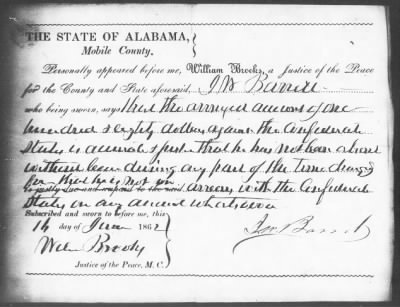 THE STATE OF ALABAMA,
Mobile County.
Personally appeared before me, William Brooks, a Justice of the Peace
for the County and State aforesaid J W Barrett
who being sworn, says that the annexed account of one
hundred & eighty dollars against the Confederate
States is correct & just that he has not been absent
without leave during any part of the time charged
for that he is not in
arrears with the Confederate
States on any account whatsoever
Subscribed and sworn to before me, this
14 day of June 1862
Wm Brooks
Justice of the Peace, M. C.